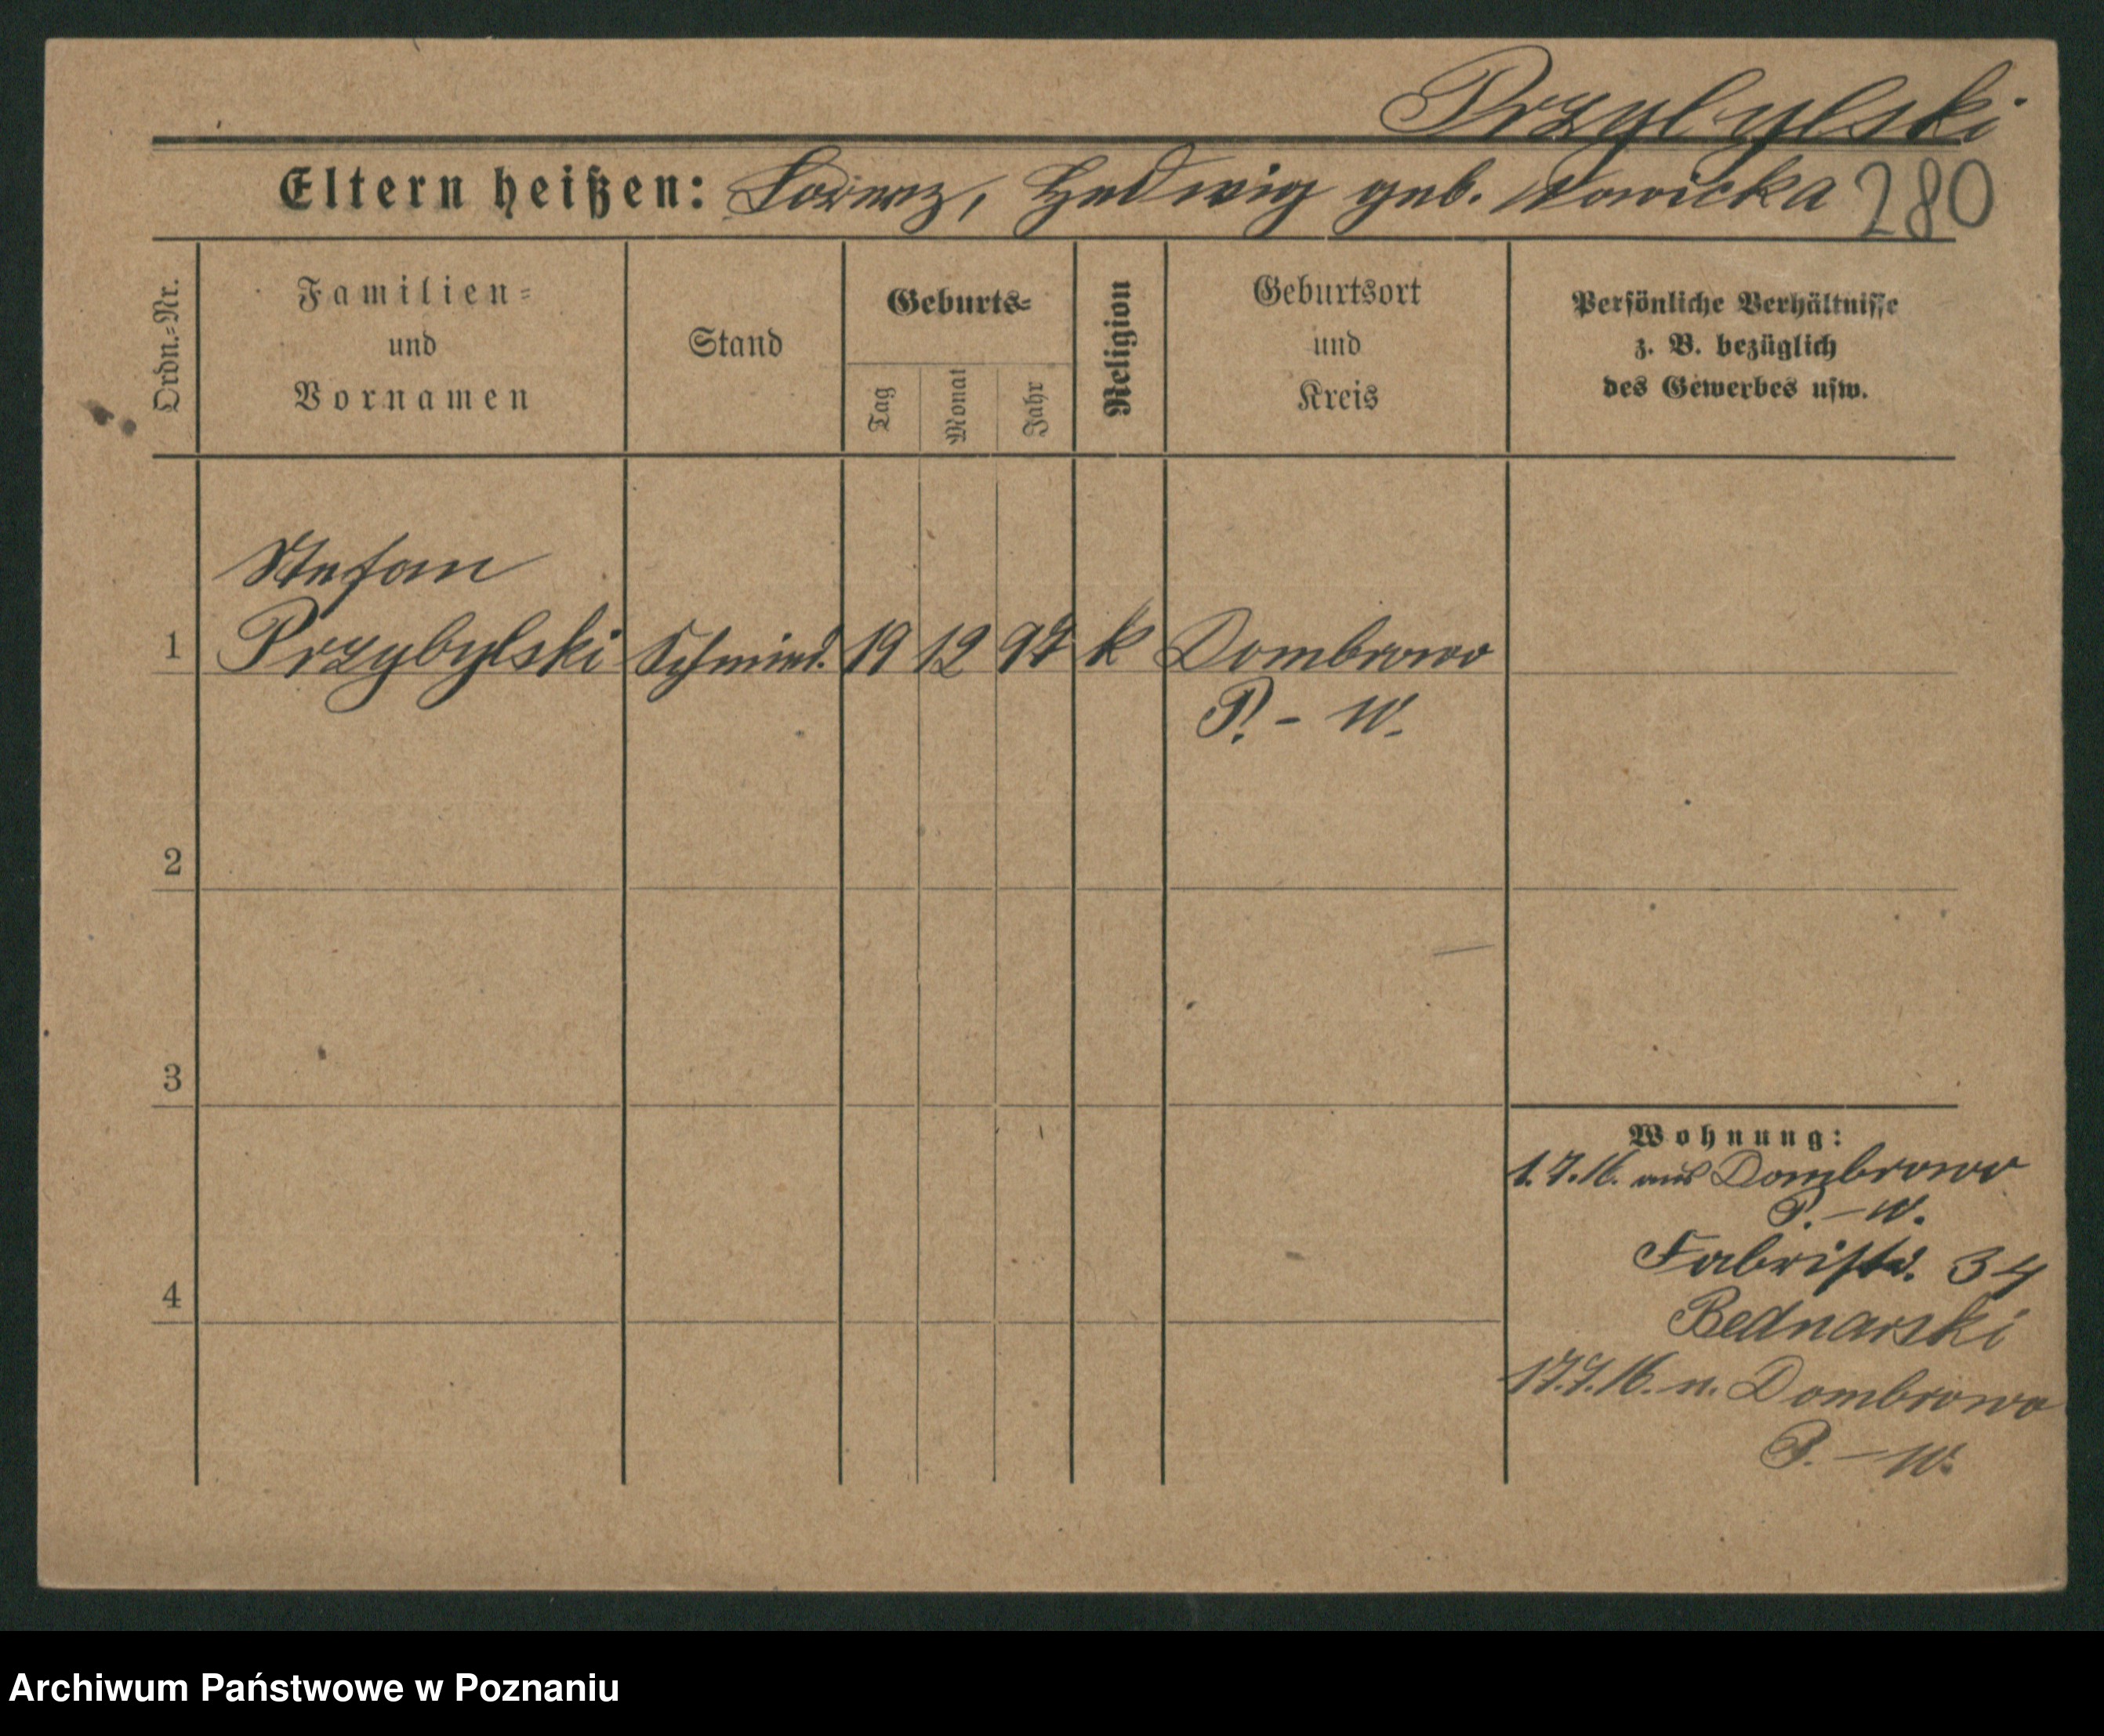 Przybylski
Eltern heißen: Lorenz, Hedwig geb. Nowicka 280
Ordn.=Nr.
Familien=
und
Vornamen
Stand
Geburts=
Tag
Monat
Jahr
Religion
Geburtsort
und
Kreis
Persönliche Verhältnisse
z. B. bezüglich
des Gewerbes usw.
Stefan
1 Przybylski Schmied. 19 12 97 k Dombrowo
P. - W.
2
3
4
Wohnung:
1.7.16. aus Dombrowo
P. - W.
Fabrikstr. 34
Bednarski
17.7.16. n. Dombrowo
P. - W.
Archiwum Państwowe w Poznaniu